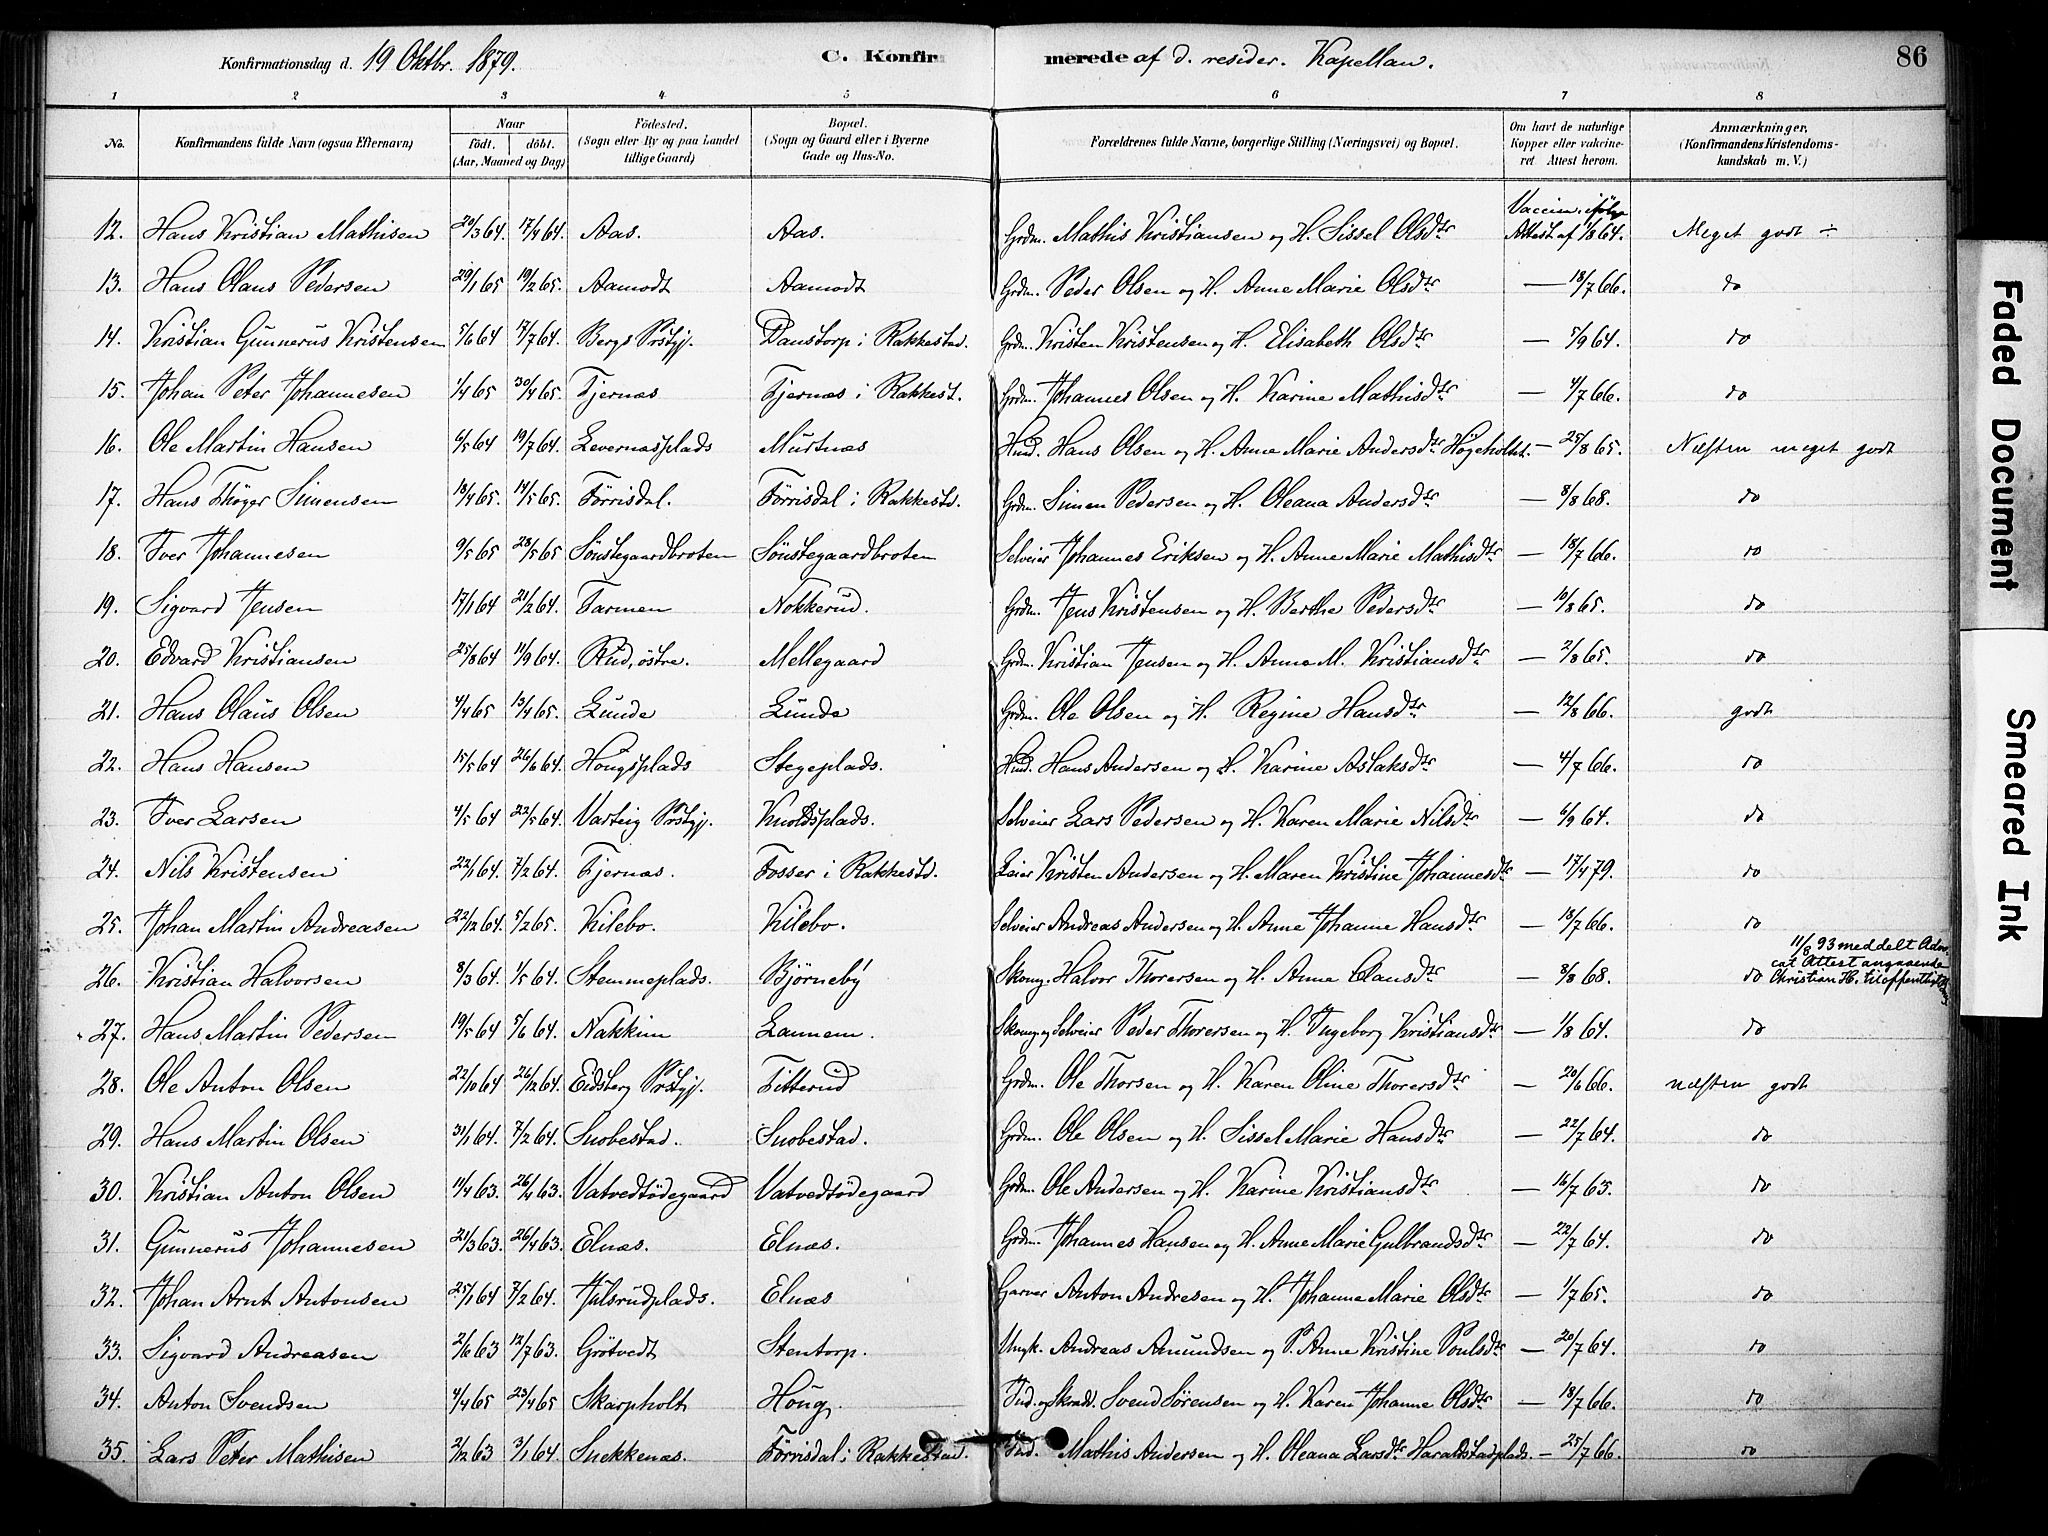 Konfirmationsdag d. 19 Oktbr. 1879. C. Konfirmerede af d. resider. Kapellan. 86
1 2 3 4 5 6 7 8
No. Konfirmandens fulde Navn (ogsaa Efternavn) Naar født. døbt. (Aar, Maaned og Dag) Fødested. (Sogn eller By og paa Landet tillige Gaard) Bopæl. (Sogn og Gaard eller i Byerne Gade og Hus-No. Forældrenes fulde Navne, borgerlige Stilling (Næringsvei) og Bopæl. Om havt de naturlige Kopper eller vaccineret Attest herom. Anmærkninger, (Konfirmandens Kristendomskundskab m. V.)
12. Hans Kristian Mathisen 20/3 64 17/4 64. Aas. Aas. Grdm. Mathis Kristiansen og H. Sissel Olsdtr Vaccin. ifølge Attest af 1/8 64. Meget godt ÷
13. Hans Olaus Pedersen 29/1 65 19/2 65. Aamodt Aamodt Grdm. Peder Olsen og H. Anne Marie Olsdtr — 18/7 66. do
14. Kristian Gunnerus Kristensen 5/6 64 17/7 64. Bergs Præstgj. Danstorp i Rakkestad. Grdm. Kristen Kristensen og H. Elisabeth Olsdtr — 5/9 64. do
15. Johan Peter Johannesen 1/4 65 30/4 65. Fjernæs Fjernæs i Rakkest. Grdm. Johannes Olsen og H. Karine Mathisdtr — 4/7 66. do
16. Ole Martin Hansen 6/5 64 19/7 64. Levernæsplads Murtnæs Husd. Hans Olsen og H. Anne Marie Andersdtr Högeholtet — 25/8 65. Næsten meget godt
17. Hans Thøger Simensen 18/4 65. 14/5 65. Førrisdal. Førrisdal i Rakkestd. Grdm. Simen Pedersen og H. Oleana Andersdtr — 8/8 68. do
18. Iver Johannesen 9/5 65 28/5 65 Sönstegaardbroten Sönstegaardbroten Selveier Johannes Eriksen og H. Anne Marie Mathisdtr — 18/7 66. do
19. Sigvard Jensen 17/1 64 21/2 64. Farmen Nokkerud. Grdm. Jens Kristensen og H. Berthe Pedersdtr — 10/8 65. do
20. Edvard Kristiansen 25/8 64 11/9 64. Rud, østre. Mellegaard Grdm. Kristian Jensen og H. Anne M. Kristiansdtr — 2/8 65. do
21. Hans Olaus Olsen 4/4 65 13/4 65. Lunde Lunde Grdm. Ole Olsen og H. Regine Hansdtr — 12/8 66. godt
22. Hans Hansen 15/5 64 26/6 64. Hougsplads Stegeplads. Husd. Hans Andersen og H. Karine Aslaksdtr — 4/7 66. do
23. Iver Larsen 4/5 64 22/5 64. Varteig Præstgj. Knoldsplads. Selveier Lars Pedersen og H. Karen Marie Nilsdtr — 6/9 64. do
24. Nils Kristensen 22/1 64. 7/2 64. Fjernæs. Fosser i Rakkestd. Leier Kristen Andersen og H. Maren Kristine Johannesdtr — 17/4 79. do
25. Johan Martin Andreasen 22/12 64. 5/2 65. Kilebo. Kilebo. Selveier Andreas Andersen og H. Anne Johanne Hansdtr — 18/7 66. do
26. Kristian Halvorsen 8/3 64. 1/5 64. Stemmeplads. Bjørneby Skomg. Halvor Thorersen og H. Anne Clausdtr — 8/8 68. do 11/8 93 meddelt Advocat Attest angaaende Christian H. til offentligt
27. Hans Martin Pedersen 19/5 64 5/6 64. Nakkim Lannem. Skomg. og Selveier Peder Thorersen og H. Ingeborg Kristiansdtr — 1/8 64. do
28. Ole Anton Olsen 22/10 64 26/12 64. Eidsberg Præstgj. Fitterud Grdm. Ole Thorsen og H. Karen Oline Thorersdtr — 20/6 66. næsten godt
29. Hans Martin Olsen 31/1 64. 7/2 64. Snobestad. Snobestad. Grdm. Ole Olsen og H. Sissel Marie Hansdtr — 22/7 64. do
30. Kristian Anton Olsen 11/4 63. 26/4 63. Vatvedtødegaard Vatvedtødegaard Grdm. Ole Andersen og H. Karine Kristiansdtr — 16/7 63. do
31. Gunnerus Johannesen 21/3 63. 26/4 63. Elnæs. Elnæs. Grdm. Johannes Hansen og H. Anne Marie Gulbrandsdtr — 22/7 64. do
32. Johan Arnt Antonsen 25/1 64 7/2 64. Julsrudplads. Elnæs Garver Anton Andresen og H. Johanne Marie Olsdtr — 1/7 65. do
33. Sigvard Andreasen 2/6 63 12/7 63. Grötvedt Stentorp. Ungk. Andreas Amundsen og P. Anne Kristine Poulsdtr — 20/7 64. do
34. Anton Svendsen 4/4 65 23/4 65 Skarpholt Houg. Ind. og Skræd. Svend Sørensen og H. Karen Johanne Olsdtr — 18/7 66. do
35. Lars Peter Mathisen 2/12 63 3/1 64. Snekkenæs. Førrisdal i Rakkestad. Ind. Mathis Andersen og H. Oleana Larsdtr Haraldstadplads. — 25/7 66. do
Faded Document
Smeared Ink